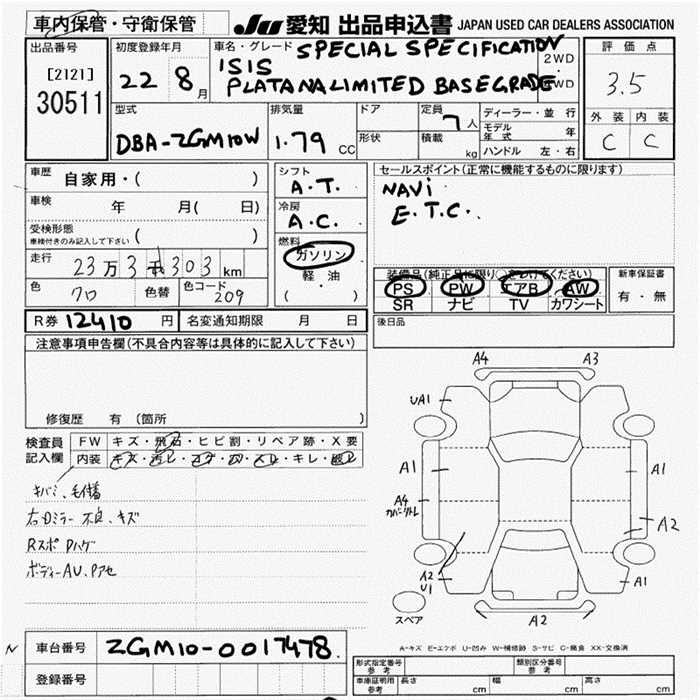 車内保管・守衛保管
JU 愛知 出品申込書 JAPAN USED CAR DEALERS ASSOCIATION
出品番号
[2121]
30511
初度登録年月
22 8月
車名・グレード
SPECIAL SPECIFICATION
ISIS
PLATANA LIMITED BASEGRADE
2WD
4WD
評価点
3.5
外装 内装
C C
型式
DBA-ZGM10W
排気量
1.79 CC
ドア
形状
定員
7人
積載
kg
ディーラー・並行
モデル年式 年
ハンドル 左・右
車歴
自家用・( )
車検 年 月( 日)
受検形態
車検付きのみ記入して下さい ( )
走行
23万3千303km
色
クロ
色替
色コード
209
シフト
A.T.
冷房
A.C.
燃料
ガソリン
軽・油
( )
セールスポイント(正常に機能するものに限ります)
NAVi
E.T.C.
装備品(純正品に限り○をつけてください)
PS PW エアB AW
SR ナビ TV カワシート
新車保証書
有・無
後日品
R券 12410円
名変通知期限 月 日
注意事項申告欄(不具合内容等は具体的に記入して下さい)
修復歴 有 (箇所 )
検査員
記入欄
FW キズ・飛石・ヒビ割・リペア跡・X要
内装 キズ・汚レ・コゲ・穴・スレ・キレ・
キバミ、毛付着
右Dミラー不良、キズ
Rスポ Pハゲ
ボディーAU、Pアセ
A4
A3
UA1
A1
A1
A4
A2
A2
U1
A1
A2
スペア
A-キズ E-エクボ U-凹み W-補修跡 S-サビ C-腐食 XX-交換済
N
車台番号
ZGM10-0017478
登録番号
形式指定番号
参考
類別区分番号
参考
車庫証明用
参考
長さ cm 幅 cm 高さ cm